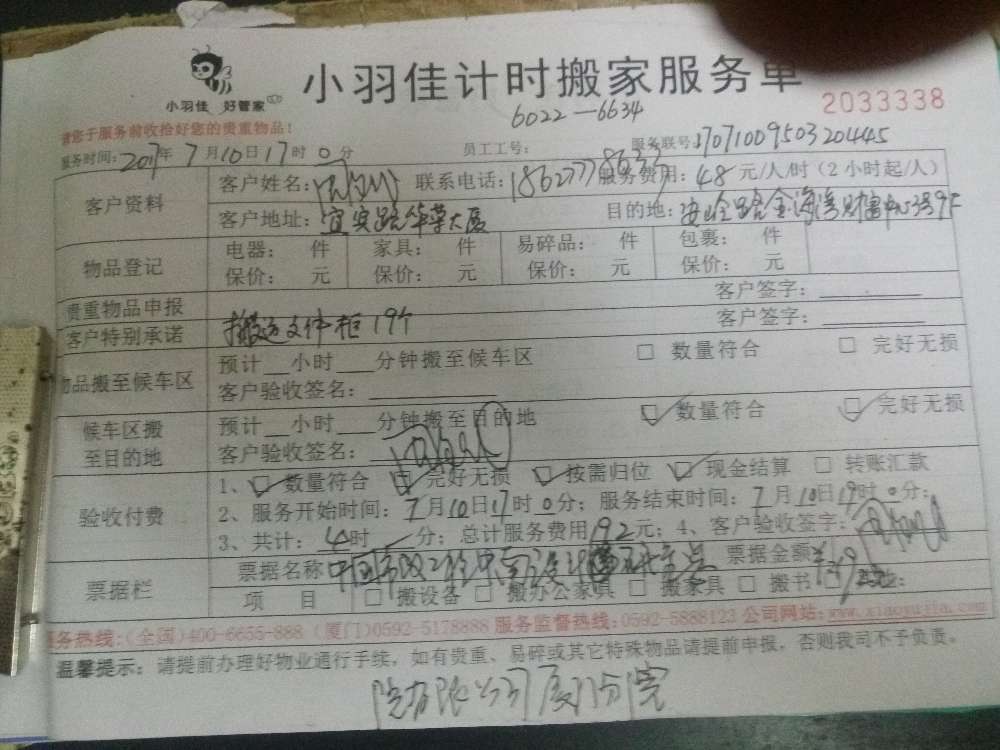 小羽佳 好管家
小羽佳计时搬家服务单
6022-6634
2033338
请您于服务前收拾好您的贵重物品!
服务时间: 2017年 7月10日17时 0分 员工工号: 服务联号: 17071009503204445
客户资料
客户姓名: 联系电话: 服务费用: 48元/人/时(2小时起/人)
客户地址: 宜宾路华荣大厦 目的地:
物品登记
电器: 件 家具: 件 易碎品: 件 包裹: 件
保价: 元 保价: 元 保价: 元 保价: 元
贵重物品申报 客户签字:
客户特别承诺 搬运文件柜19个 客户签字:
物品搬至候车区
预计 小时 分钟搬至候车区 □ 数量符合 □ 完好无损
客户验收签名:
候车区搬至目的地
预计 小时 分钟搬至目的地 ☑ 数量符合 ☑ 完好无损
客户验收签名:
验收付费
1、☑ 数量符合 ☑ 完好无损 ☑ 按需归位 ☑ 现金结算 □ 转账汇款
2、服务开始时间: 7月10日17时 0分; 服务结束时间: 7月10日19时 0分;
3、共计: 4时 分; 总计服务费用192元; 4、客户验收签字:
票据栏
票据名称 中国市政工程中南设计 票据金额
项 目 □ 搬设备 □ 搬办公家具 □ 搬家具 □ 搬书 □
服务热线:(全国)400-6655-888 (厦门)0592-5178888 服务监督热线:0592-5888123 公司网站:www.xiaoyujia.com
温馨提示: 请提前办理好物业通行手续, 如有贵重、易碎或其它特殊物品请提前申报, 否则我司不予负责。
院有限公司厦门分院